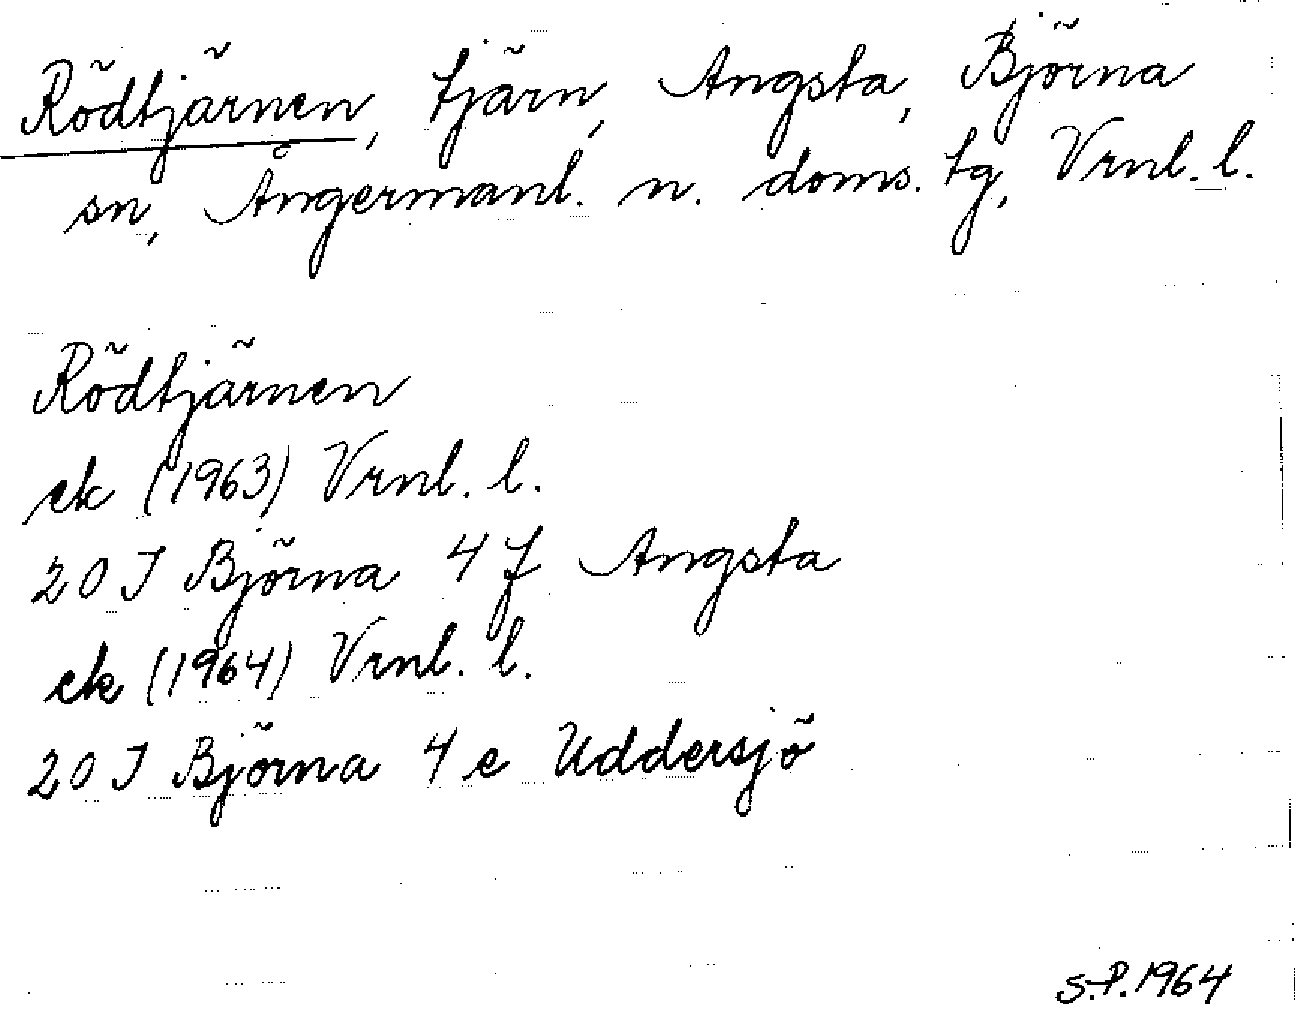 Rödtjärnen, tjärn, Angsta, Björna
sn, Ångermanl. n. doms. tg, Vrnl. l.
Rödtjärnen
ek (1963) Vrnl. l.
20 J Björna 4 f Angsta
ek (1964) Vrnl. l.
20 J Björna 4 e Uddersjö
S.P. 1964